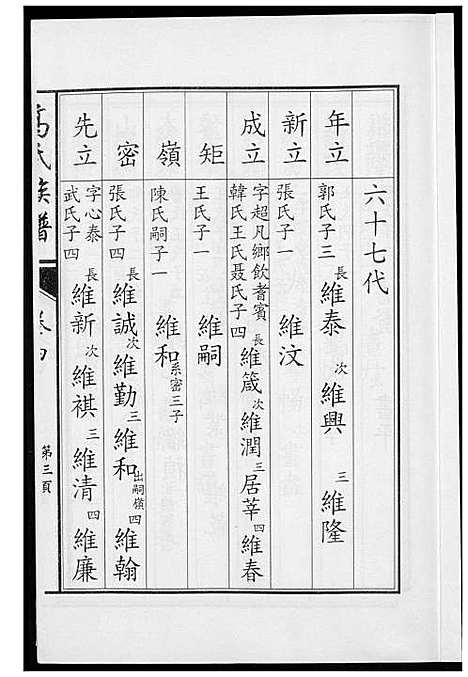 六十七代
年立 郭氏子三 長維泰 次維興 三維隆
新立 張氏子一 維汶
成立 字超凡鄉飲耆賓 韓氏王氏聶氏子四 長維箴 次維潤 三居莘 四維春
矩 王氏子一 維嗣
嶺 陳氏嗣子一 維和系密三子
密 張氏子四 長維誠 次維勤 三維和出嗣嶺 四維翰
先立 字心泰 武氏子四 長維新 次維祺 三維清 四維廉
高氏族譜
卷四
第三頁